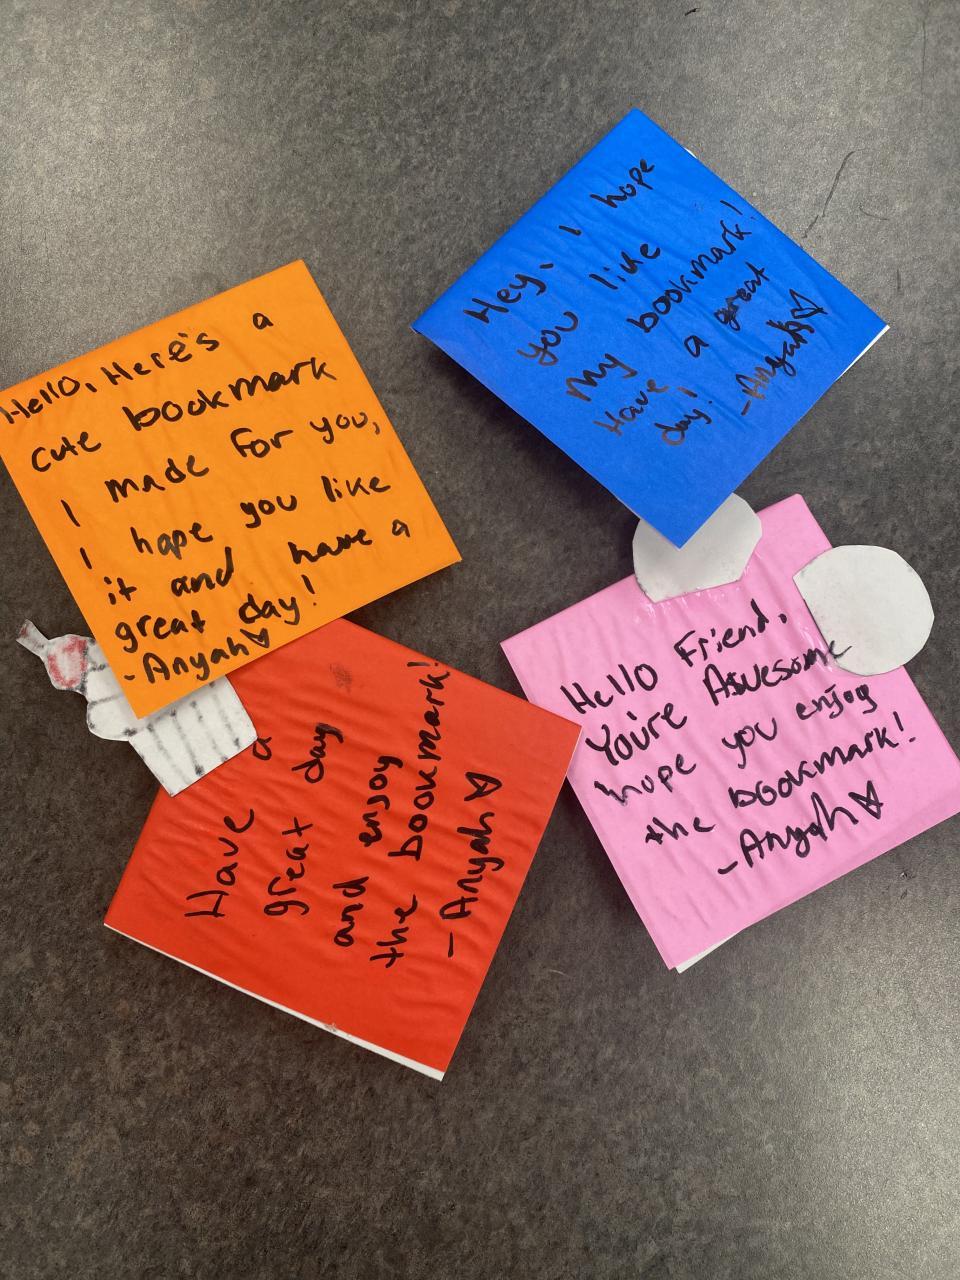 Hello, Here's a
cute bookmark
I made for you,
I hope you like
it and have a
great day!
-Anyah♡
Hey, I hope
you like
my bookmark!
Have a great
day! -Anyah♡
Have a
great day
and enjoy
the bookmark!
-Anyah♡
Hello Friend,
You're Awesome
hope you enjoy
the bookmark!
-Anyah♡